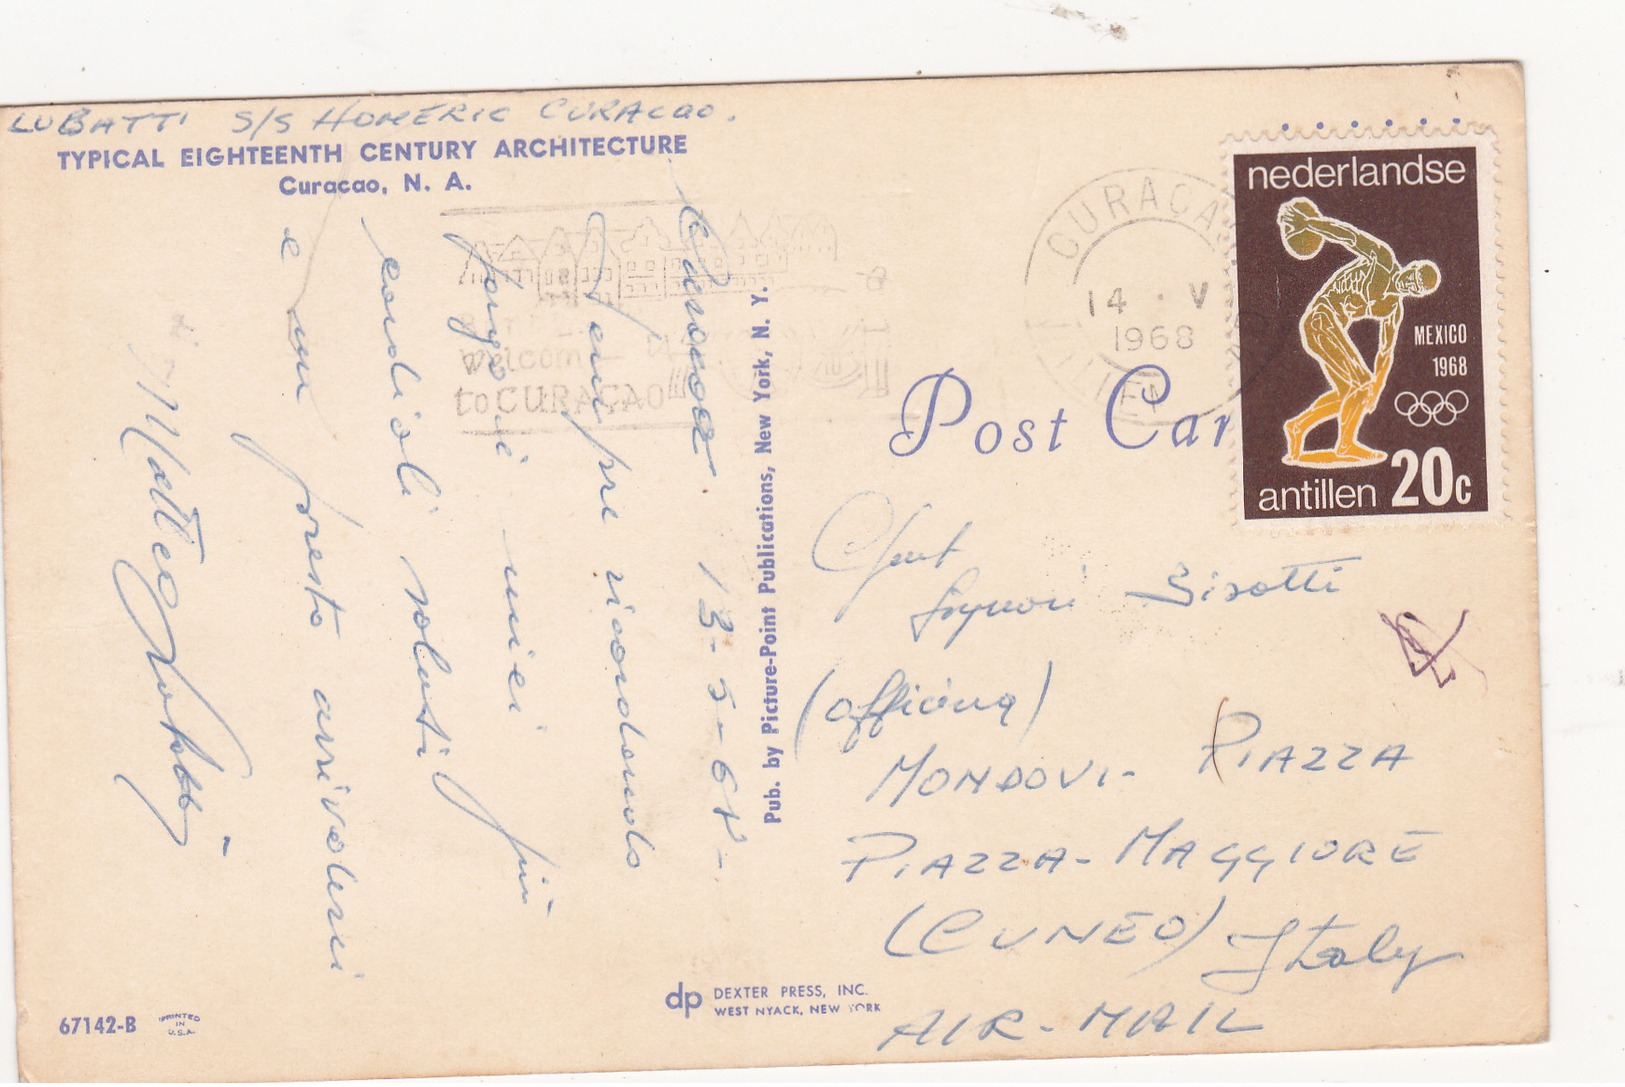 LUBATTI S/S HOMERIC CURACAO.
TYPICAL EIGHTEENTH CENTURY ARCHITECTURE
Curacao, N. A.
welcom
to CURAÇAO
CURACA
14 · V
1968
nederlandse
MEXICO
1968
antillen 20c
Post Car
13-5-68-
Sempre ricordando
Porgo i miei più
cordiali saluti
e un presto arrivederci
Matteo Lubatti
Pub. by Picture-Point Publications, New York, N. Y.
Gent
Signori Sisotti
(officina)
MONDOVI- PIAZZA
PIAZZA-MAGGIORE
(CUNEO) Italy
AIR-MAIL
dp DEXTER PRESS, INC.
WEST NYACK, NEW YORK
67142-B
PRINTED
IN
U.S.A.